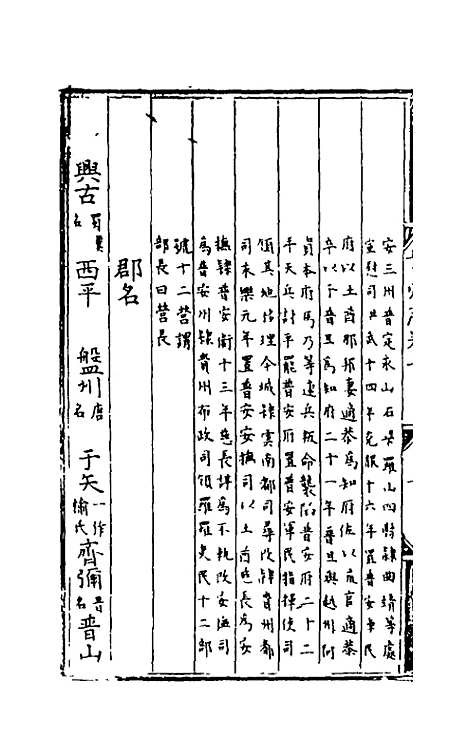 安三州普定永山石梁羅山四縣隷曲靖等處
宣慰司洪武十四年克服十六年置普安軍民
府以土酋那邦妻適恭為知府佐以流官適恭
卒以子普旦為知府二十一年普旦與越州阿
資本府馬乃等連兵叛命襲陷普安府二十二
年天兵討平罷普安府置普安軍民指揮使司
領其地修理今城隷雲南都司尋改隷貴州都
司永樂元年置普安安撫司以土酋慈長為安
撫隷普安衛十三年慈長謀為不軌改安撫司
為普安州隷貴州布政司領羅羅夷民十二部
號十二營謂
部長曰營長
郡名
興古 蜀漢名 西平 盤州 唐名 于矢 一作愉氏 齊彌 普名 普山